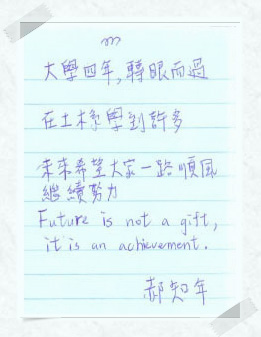 大學四年,轉眼而過
在土木系學到許多
未來希望大家一路順風
繼續努力
Future is not a gift,
it is an achievement.
郝知年